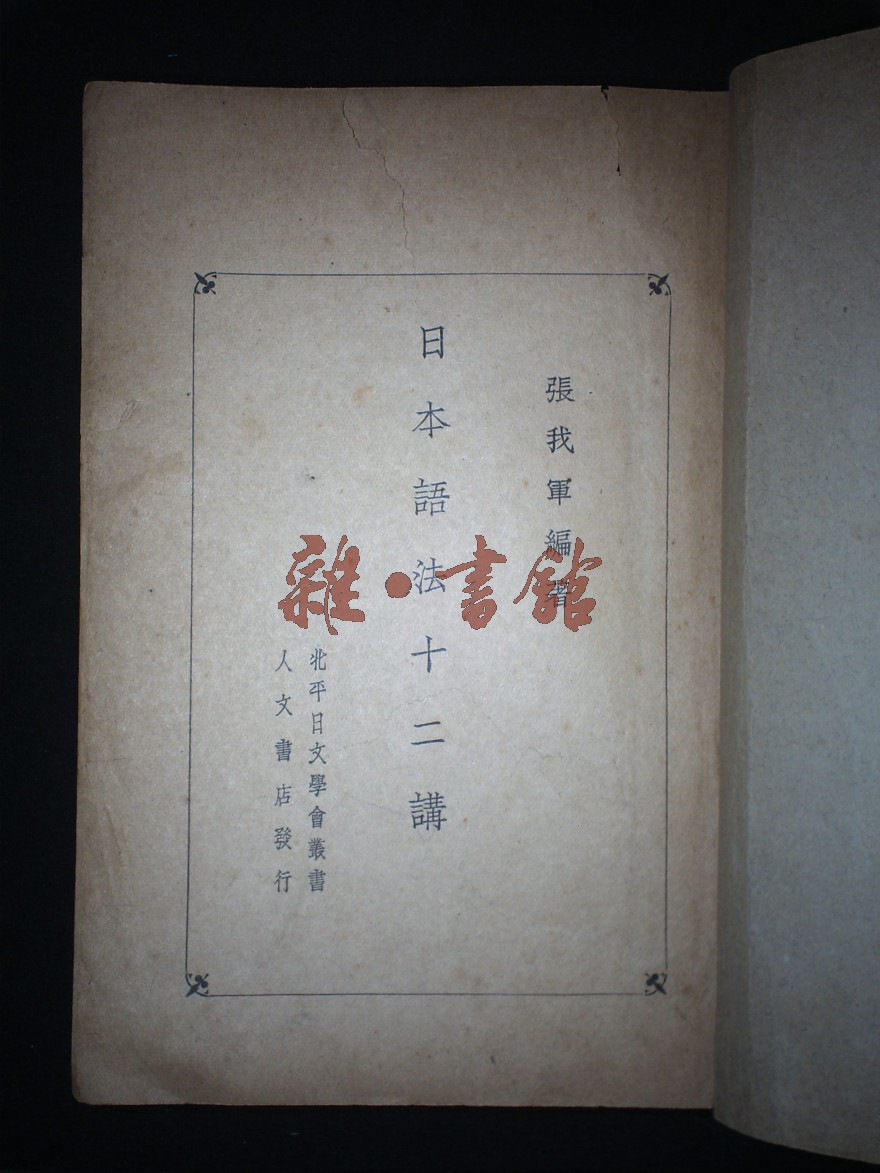 張我軍編著
日本語法十二講
北平日文學會叢書
人文書店發行
雜·書館